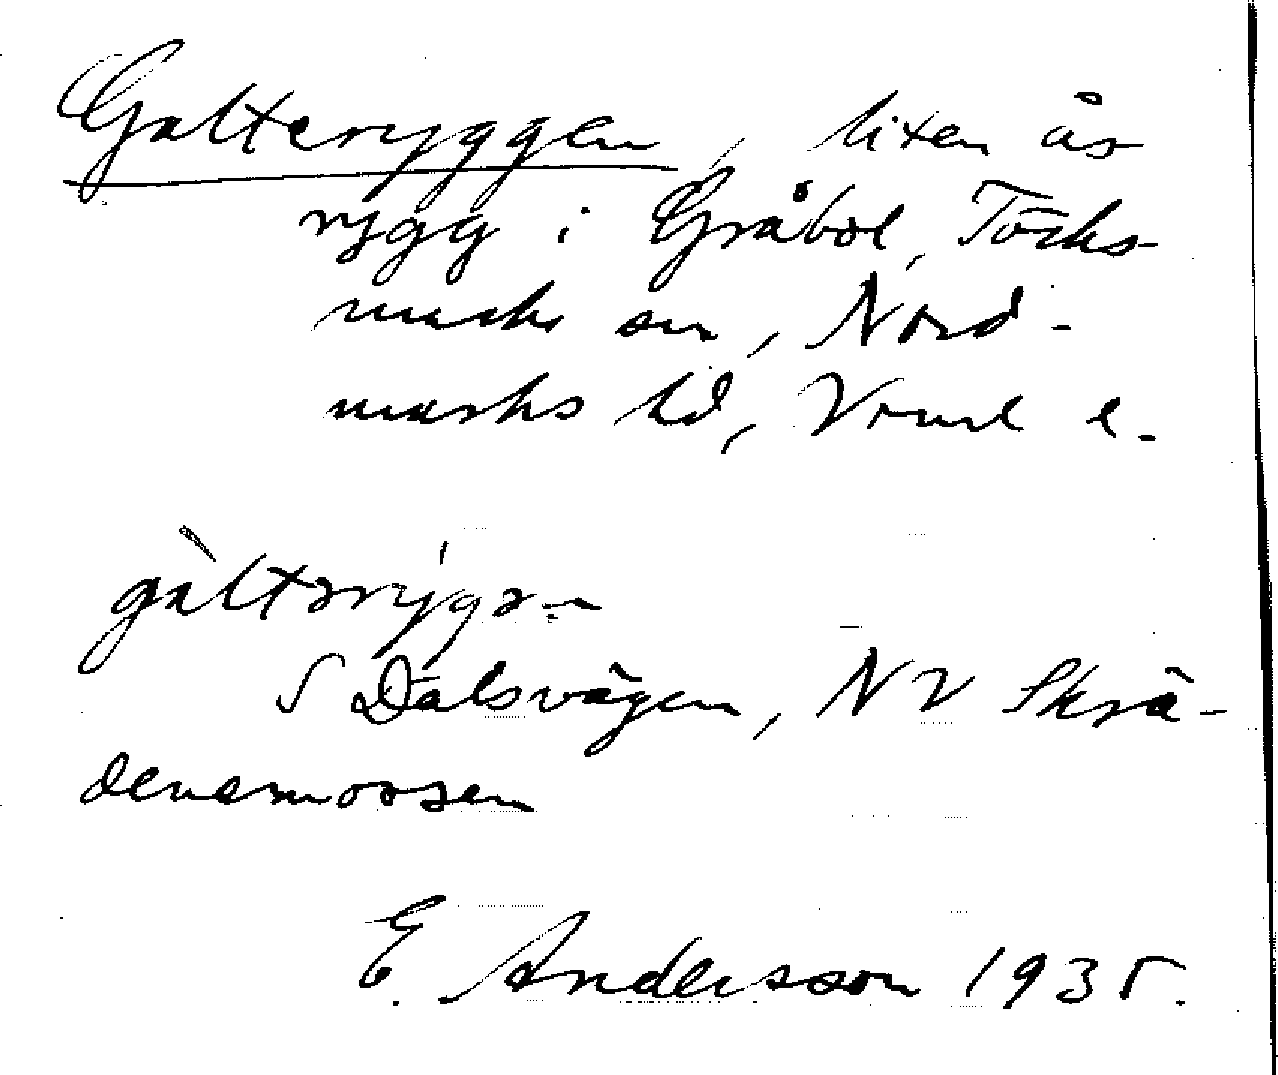 Galteryggen, liten ås
rygg i Gråbol, Töcks-
marks sn, Nord-
marks hd, Vrml e.
gàltərýgə-n
S Dalsvägen, NV Skrä-
denemossen
E. Andersson 1935.